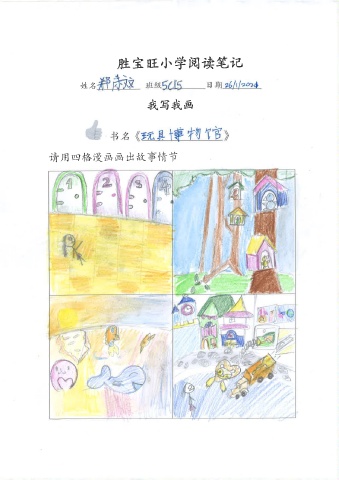 胜宝旺小学阅读笔记
姓名 班级 5C15 日期 26/1/2024
我写我画
书名《玩具博物馆》
请用四格漫画画出故事情节
1 2 3 4